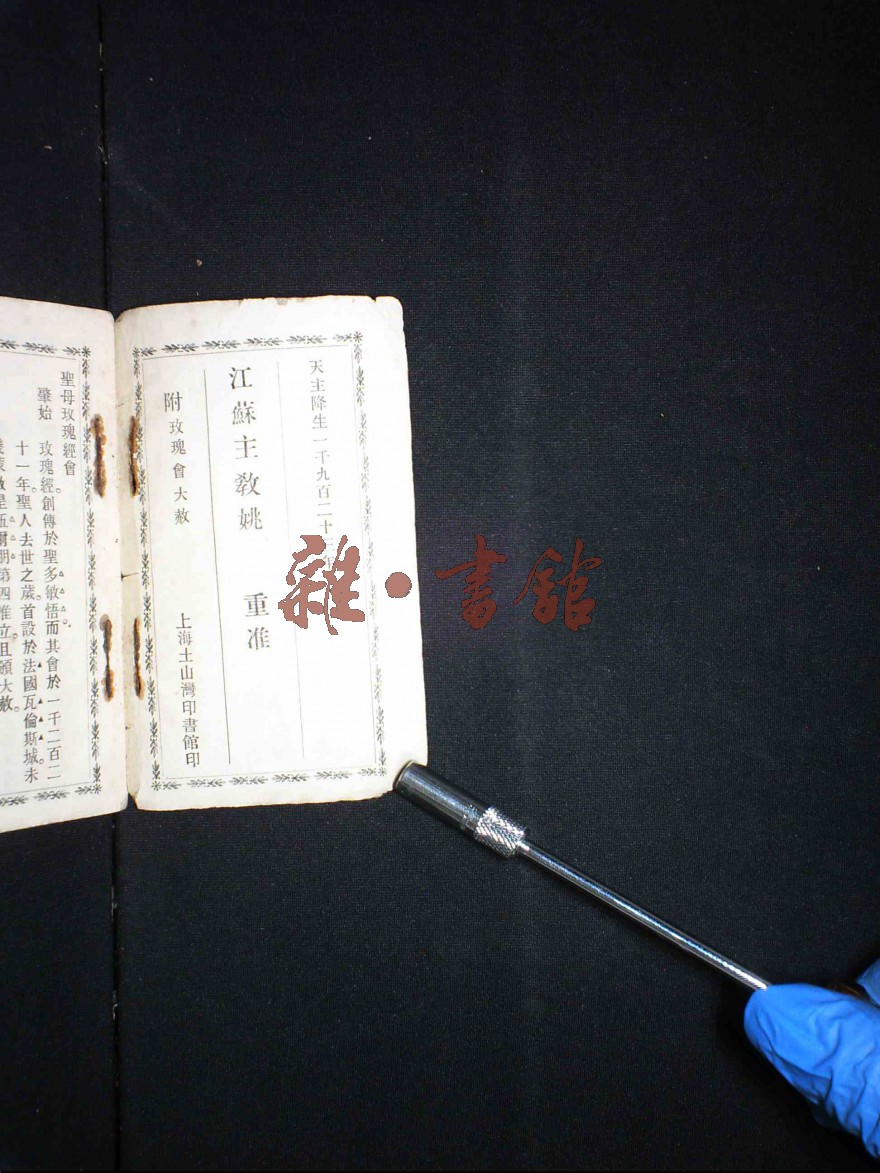 天主降生一千九百二十三年
江蘇主教姚 重准
附玫瑰會大赦
上海土山灣印書館印
聖母玫瑰經會
肇始 玫瑰經創傳於聖多敏悟而其會於一千二百二
十一年聖人去世之歲。首設於法國瓦倫斯城。未
立且頒大赦。
雜·書館